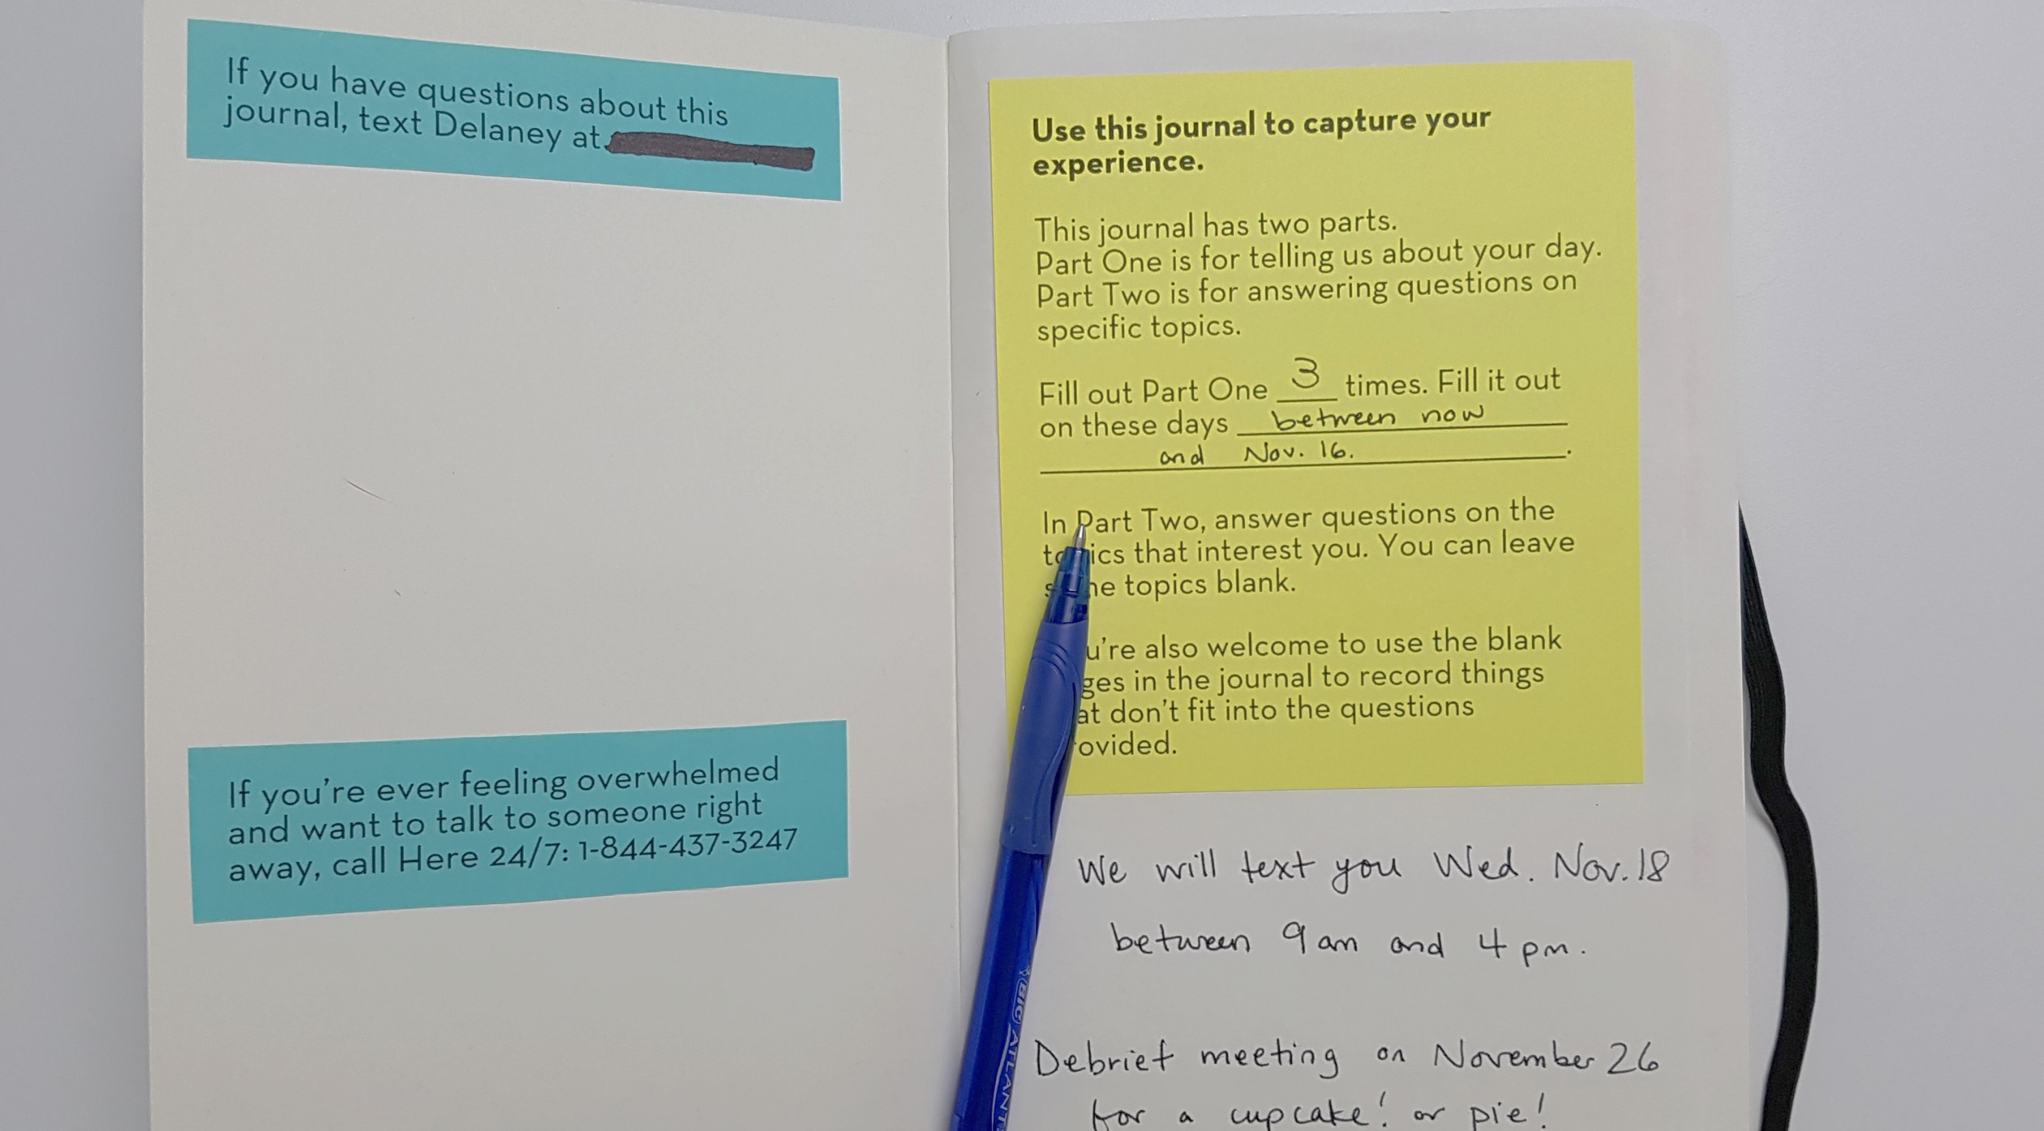 If you have questions about this
journal, text Delaney at
If you're ever feeling overwhelmed
and want to talk to someone right
away, call Here 24/7: 1-844-437-3247
Use this journal to capture your
experience.
This journal has two parts.
Part One is for telling us about your day.
Part Two is for answering questions on
specific topics.
Fill out Part One 3 times. Fill it out
on these days between now
and Nov. 16.
In Part Two, answer questions on the
topics that interest you. You can leave
some topics blank.
You're also welcome to use the blank
pages in the journal to record things
that don't fit into the questions
provided.
We will text you Wed. Nov. 18
between 9 am and 4 pm.
Debrief meeting on November 26
for a cupcake! or pie!
BIC ATLANT